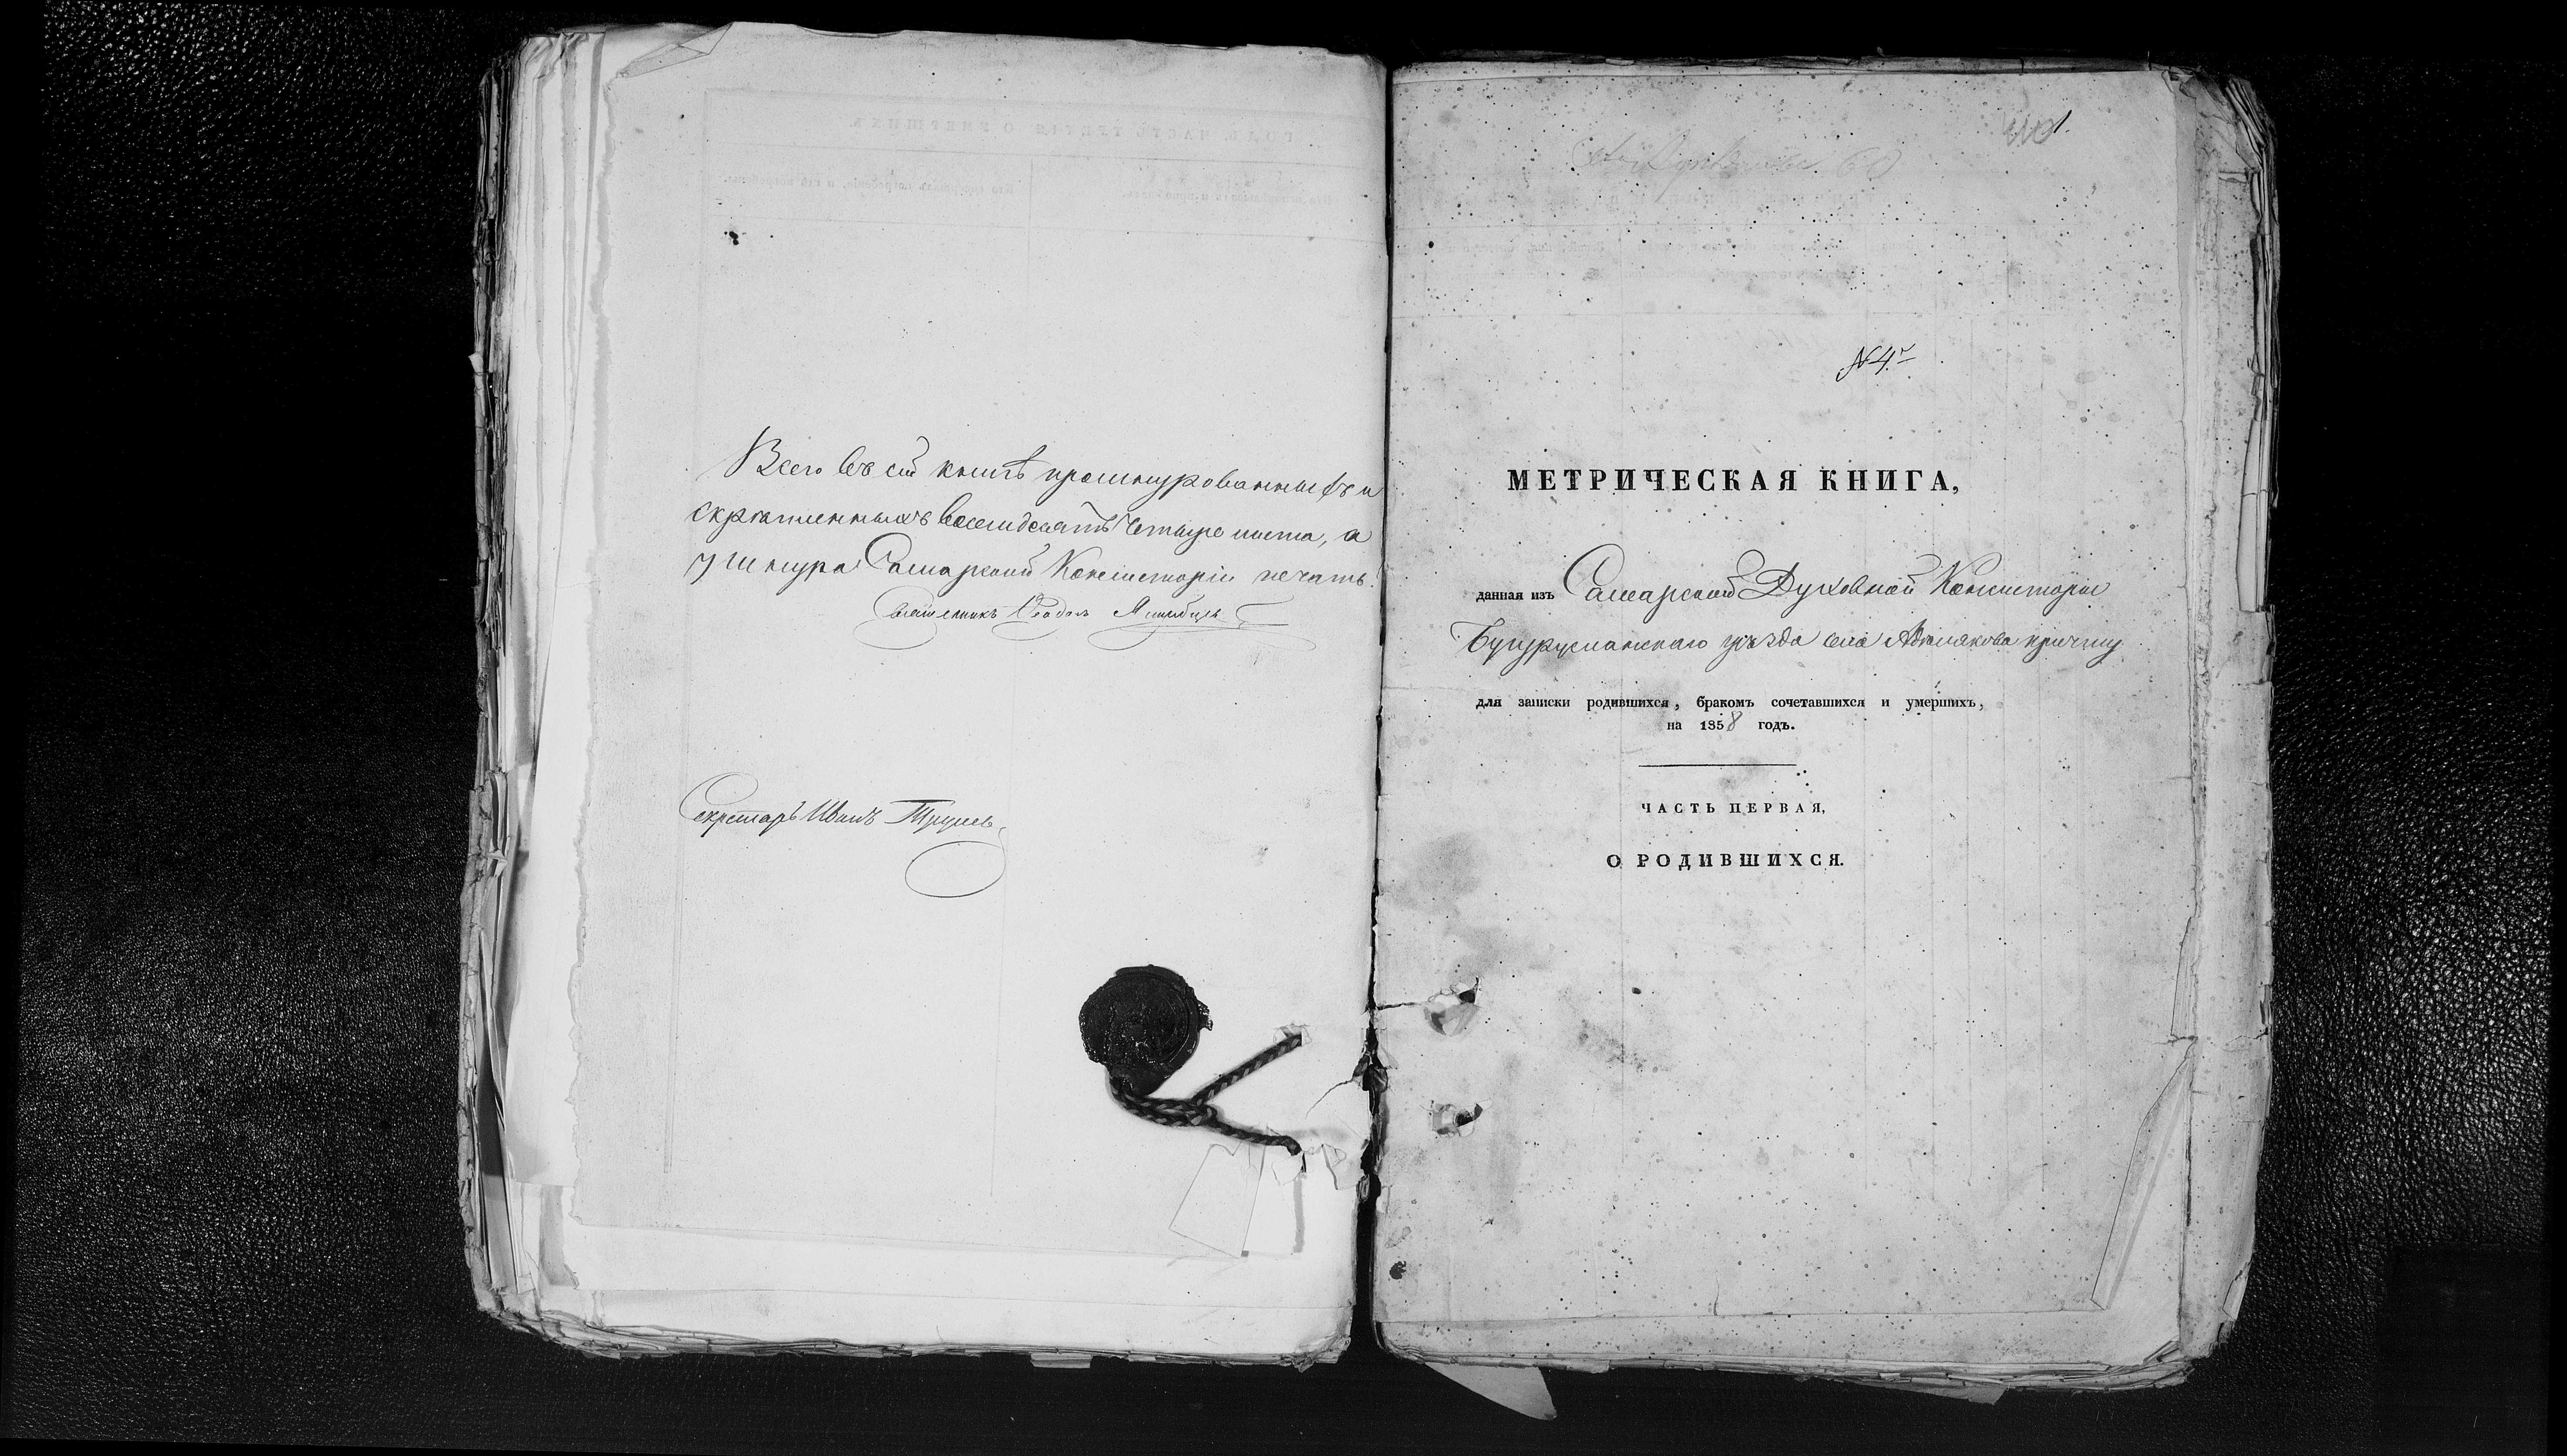 Всего въ сей книгѣ прошнурованныхъ и
скрѣпленныхъ восемдесятъ четыре листа, а
у шнура Самарской Консисторіи печать.
Священникъ
Секретарь Иванъ
№ 4й
МЕТРИЧЕСКАЯ КНИГА,
данная изъ Самарской Духовной Консисторіи
Бугурусланскаго уѣзда села Абдикеева причту
для записки родившихся, бракомъ сочетавшихся и умершихъ,
на 1858 годъ.
ЧАСТЬ ПЕРВАЯ,
О РОДИВШИХСЯ.